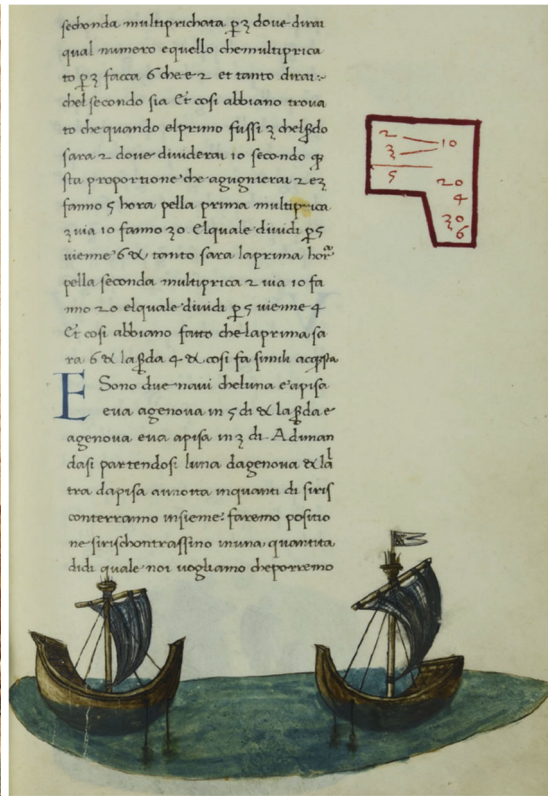 sechonda multiprichata p 3 dove dirai
qual numero e quello che multiprica
to p 3 facca 6 che e 2 et tanto dirai
chel secondo sia Et cosi abbiano trova
to che quando el primo fussi 3 chel sdo
sara 2 dove dividerai 10 secondo q
sta proportione che agugnierai 2 e 3
fanno 5 hora pella prima multiprica
3 via 10 fanno 30 El quale dividi p 5
vienne 6 & tanto sara la prima hora
pella seconda multiprica 2 via 10 fa
nno 20 el quale dividi p 5 vienne 4
Et cosi abbiano fatto che la prima sa
ra 6 & la sda 4 & cosi fa simili
E Sono due navi che luna e apisa
e va agenova in 5 di & la sda e
agenova e va apisa in 3 di. Adiman
dasi partendosi luna da genova & la
tra da pisa in quanti di si ris
conterranno insieme: faremo positio
ne si rischontrassino in una quantita
di di quale noi vogliamo che porremo
2
3
10
5
20
4
30
6